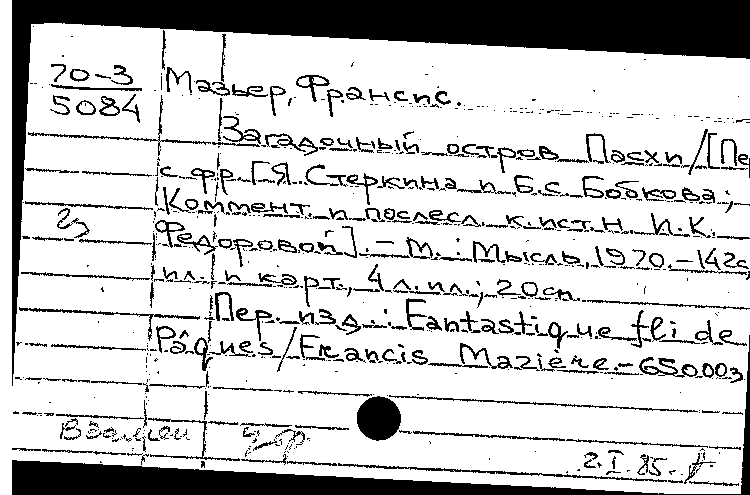 70-3
5084
Мазьер, Франсис.
Загадочный остров Пасхи/[Пе
с фр. Г.Я. Стеркина и Б.С. Бобкова;
Коммент. и послесл. к.ист.н. И.К.
Федоровой]. - М.: Мысль, 1970. - 142с,
ил. и карт., 4 л. ил.; 20см.
Пер. изд.: Fantastique fli de
Pâques/Francis Mazière. - 65000з
Взамен
2.I.85.